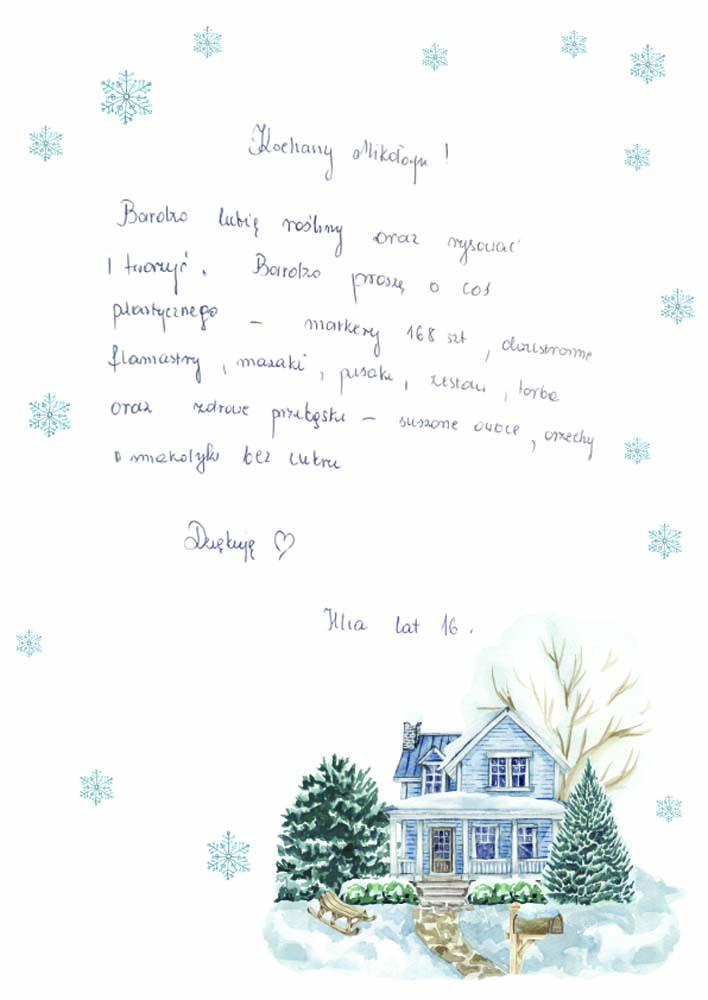 Kochany Mikołaju !
Bardzo lubię rośliny oraz rysować
i tworzyć. Bardzo proszę o coś
plastycznego - markery 168 szt, dwustronne
flamastry, mazaki, pisaki, zestaw, torba
oraz zdrowe przekąski - suszone owoce, orzechy
smakołyki bez cukru
Dziękuję ♡
lat 16.